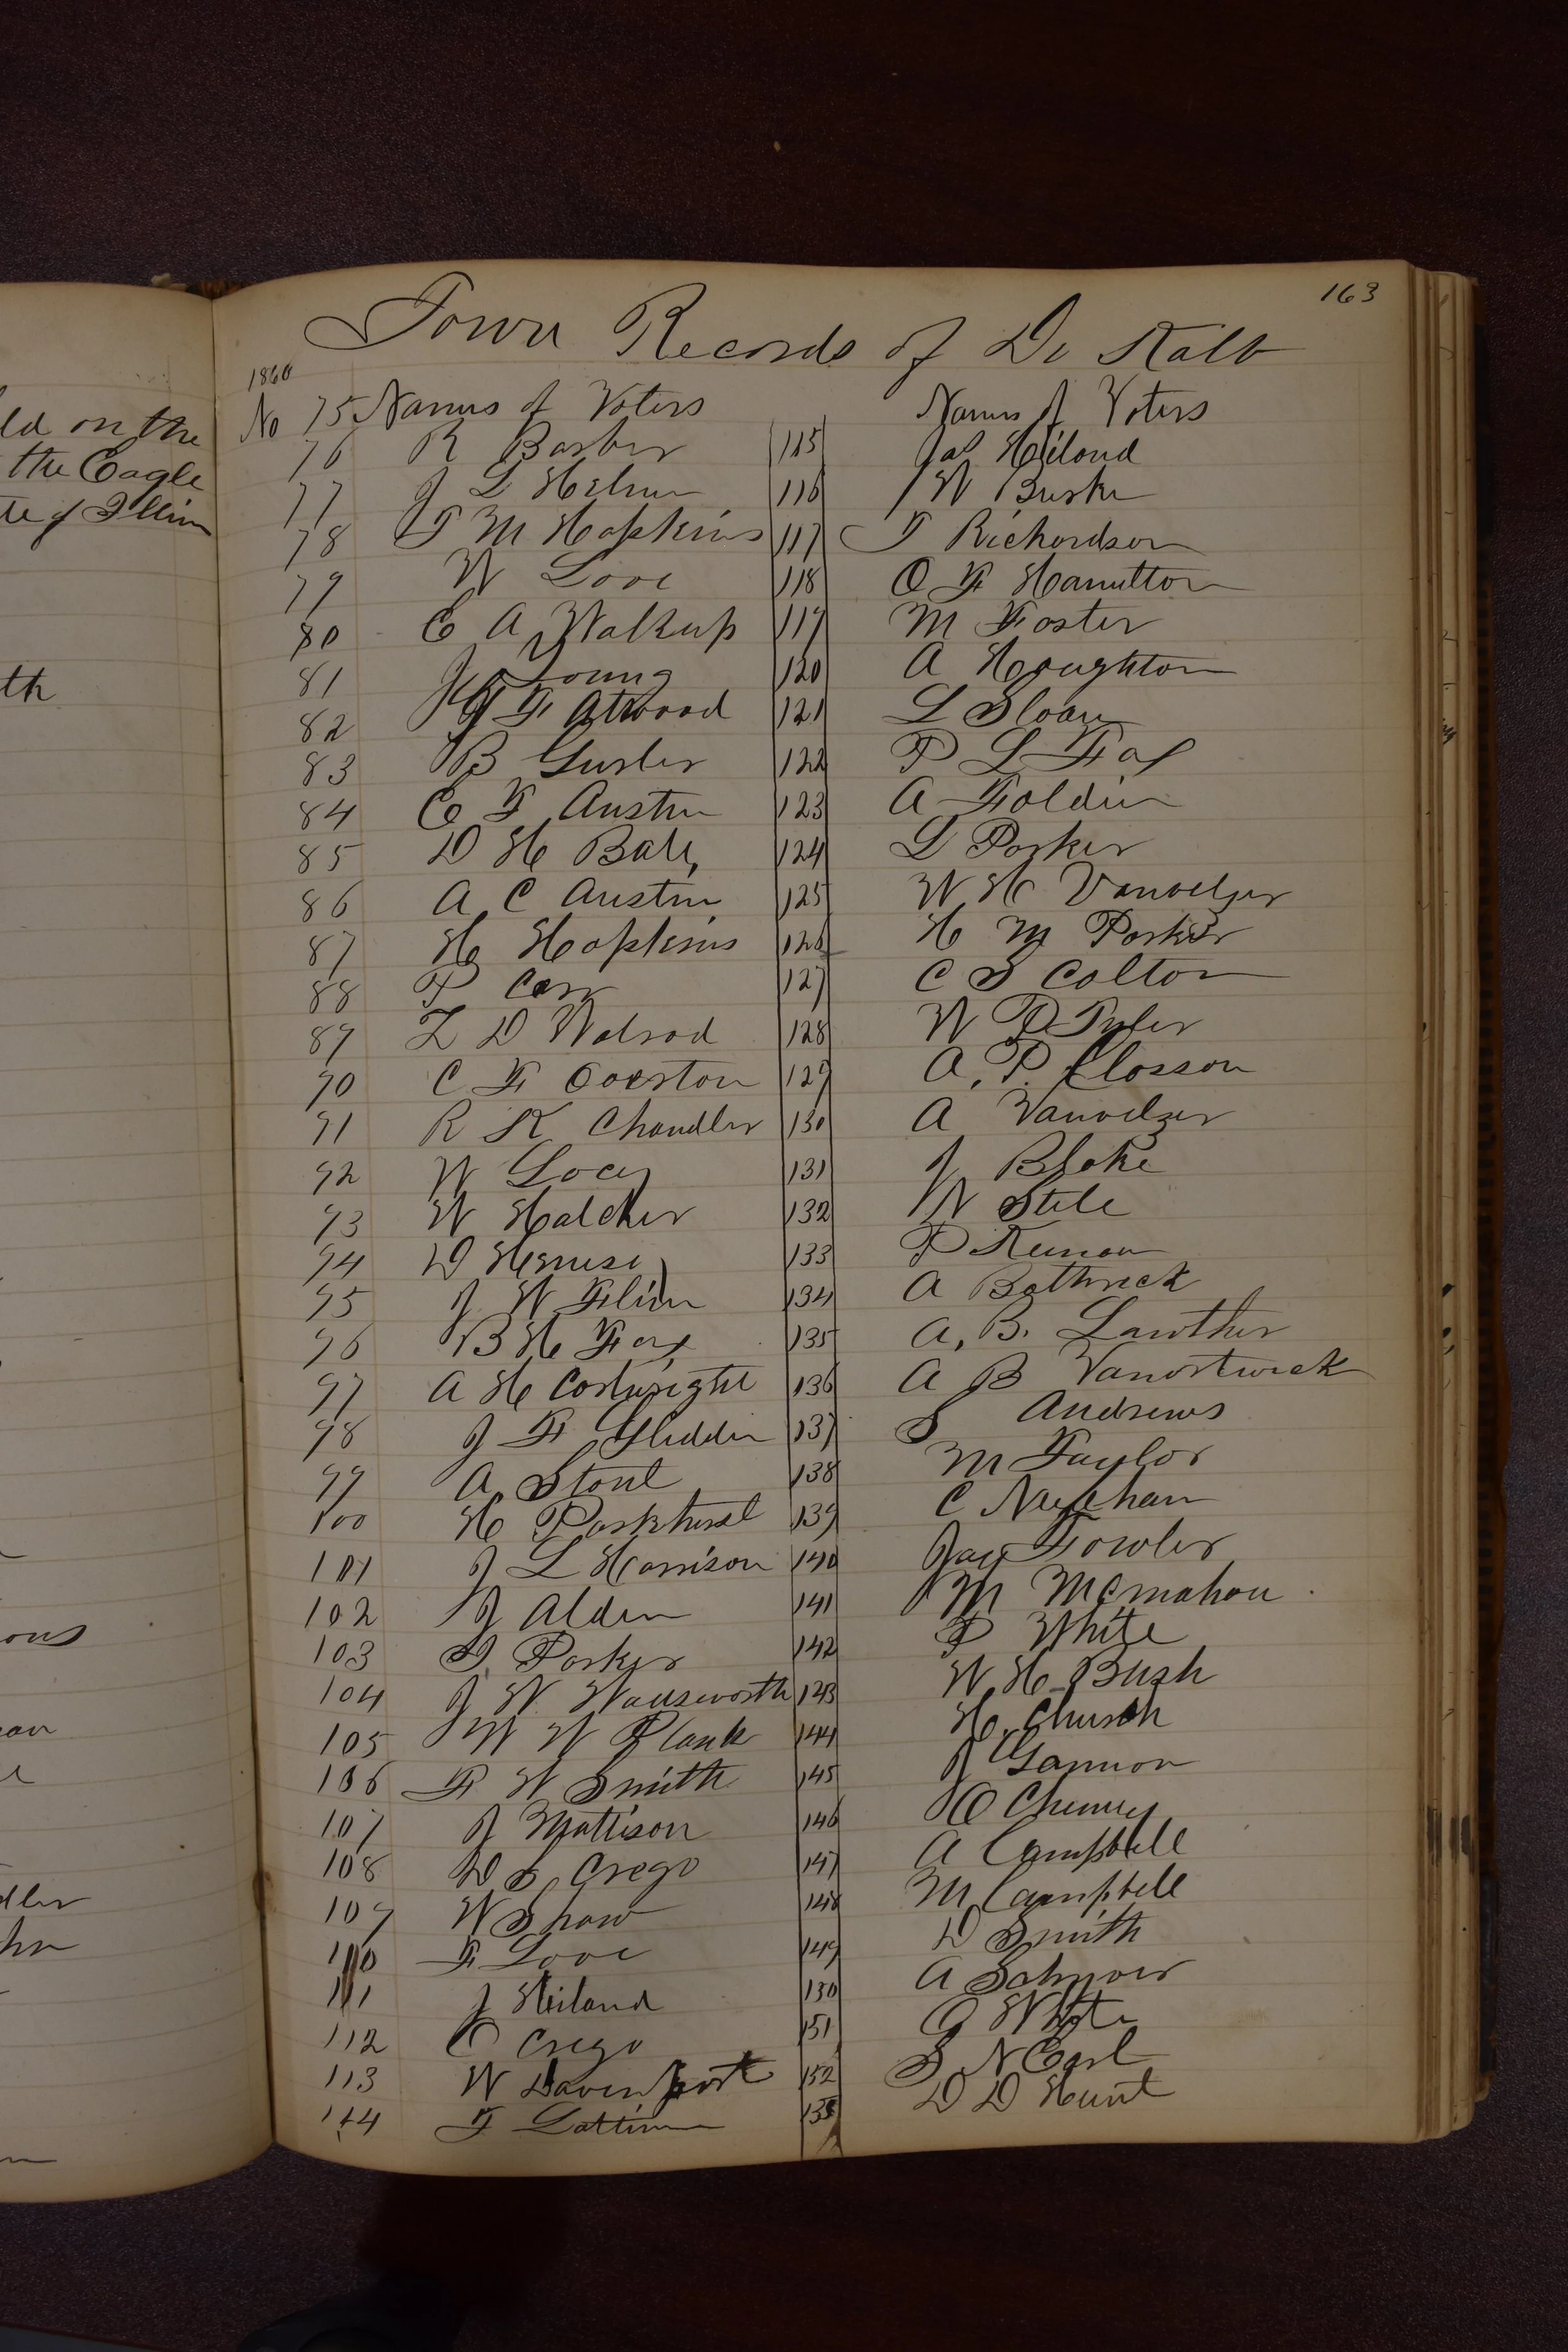 163
Town Records of De Kalb
1860
No 75 Names of Voters Names of Voters
76 R Barber 115 Jas Hiland
77 J L Helm 116 W Burke
78 T M Hopkins 117 T Richardson
79 W Love 118 O F Hamilton
80 E A Walkup 119 M Foster
81 J Young 120 A Houghton
82 J F Atwood 121 L Sloan
83 B Gurler 122 P L Fay
84 E F Austin 123 A Foldin
85 D H Bale, 124 L Parker
86 A C Austin 125 W H Vanvelzer
87 H Hopkins 126 H M Parker
88 P Carr 127 C S Colton
89 Z D Walrod 128 W P Tyler
90 C F Overton 129 A. P. Closson
91 R K Chandler 130 A Vanvelzer
92 W Locey 131 J Blake
93 W Halcher 132 N Stile
94 D 133 P Keenan
95 J W Flinn 134 A Bathrick
96 B H Fay 135 A. B. Lawther
97 A H Cortwright 136 A B Vanostwick
98 J F Glidden 137 S Andrews
99 A Stout 138 M Taylor
100 H Parkhurst 139 C
101 J L Harrison 140 Jay Fowler
102 J Alden 141 M Mcmahon
103 I. Parker 142 P White
104 J W Wadsworth 143 W H Bush
105 W W Plank 144 H. Church
106 F W Smith 145 J Gannon
107 J Mattison 146 O Cheney
108 D S Crego 147 A Campbell
109 W Shaw 148 M Campbell
110 F Love 149 D Smith
111 J Hiland 150 A
112 O Crego 151 G White
113 W Davenport 152 S N Earl
114 F Lattimer 153 D D Hunt
ld on the
the Eagle
te of Illin
th
ons
dler